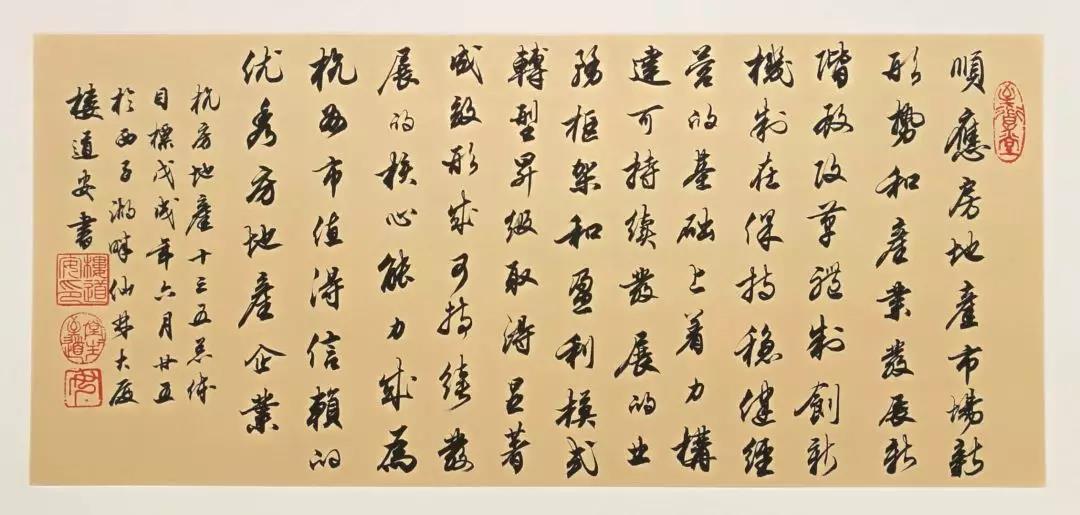 順應房地產市場新
形勢和產業發展新
階段改革體制創新
機制在保持穩健經
营的基础上着力構
建可持續發展的业
務框架和盈利模式
轉型昇級取得显著
成效形成可持續發
展的核心能力成為
杭州市值得信賴的
优秀房地產企業
杭房地產十三五总体
目標戊戌年六月廿五
於西子湖畔仙林大厦
樓道安書
樓道安印